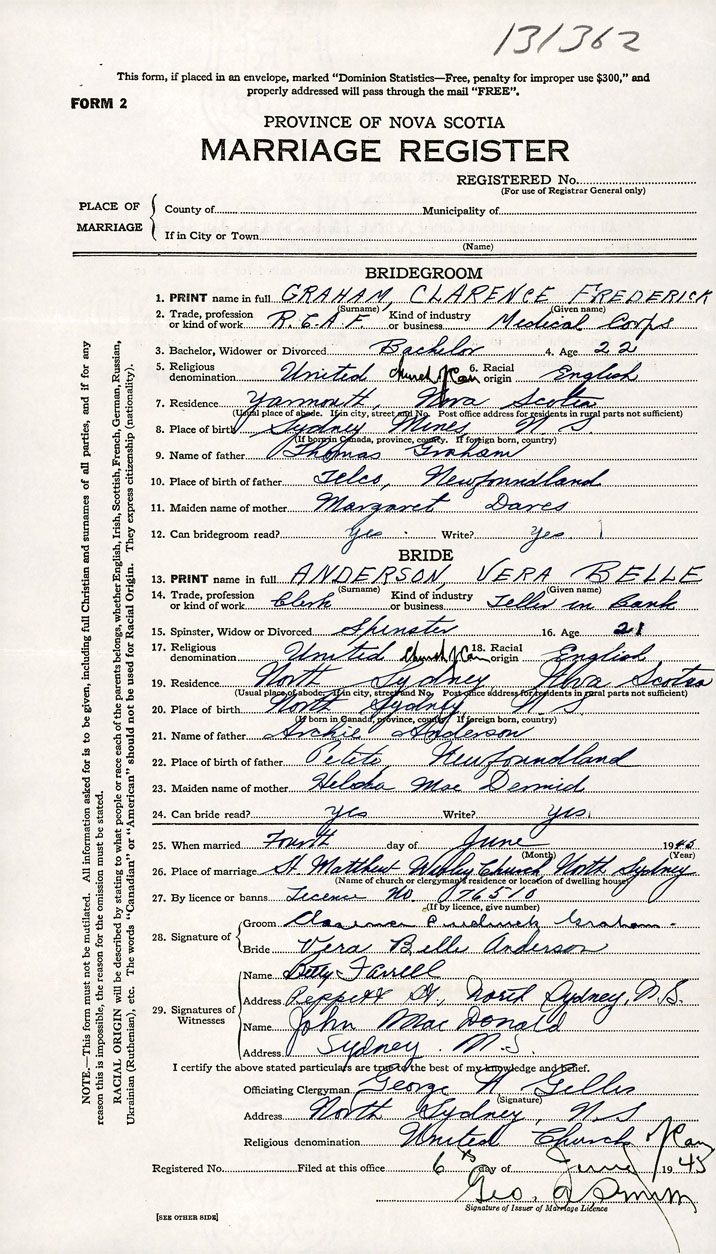 131362
This form, if placed in an envelope, marked "Dominion Statistics—Free, penalty for improper use $300," and
properly addressed will pass through the mail "FREE".
FORM 2
PROVINCE OF NOVA SCOTIA
MARRIAGE REGISTER
REGISTERED No.
(For use of Registrar General only)
PLACE OF MARRIAGE
County of Municipality of
If in City or Town
(Name)
BRIDEGROOM
1. PRINT name in full GRAHAM, CLARENCE FREDERICK
(Surname) (Given name)
2. Trade, profession or kind of work R.C.A.F. Kind of industry or business Medical Corps
3. Bachelor, Widower or Divorced Bachelor 4. Age 22
5. Religious denomination United Church of Can 6. Racial origin English
7. Residence Yarmouth, Nova Scotia
(Usual place of abode. If in city, street and No. Post office address for residents in rural parts not sufficient)
8. Place of birth Sydney Mines N S
(If born in Canada, province, county. If foreign born, country)
9. Name of father Thomas Graham
10. Place of birth of father Newfoundland
11. Maiden name of mother Margaret
12. Can bridegroom read? Yes Write? Yes
BRIDE
13. PRINT name in full ANDERSON VERA BELLE
(Surname) (Given name)
14. Trade, profession or kind of work Clerk Kind of industry or business Teller in Bank
15. Spinster, Widow or Divorced Spinster 16. Age 21
17. Religious denomination United Church of Can 18. Racial origin English
19. Residence North Sydney, Nova Scotia
(Usual place of abode. If in city, street and No. Post office address for residents in rural parts not sufficient)
20. Place of birth North Sydney N S
(If born in Canada, province, county. If foreign born, country)
21. Name of father Archie Anderson
22. Place of birth of father Newfoundland
23. Maiden name of mother Mac Dermid
24. Can bride read? Yes Write? Yes
25. When married Fourth day of June 1945
(Month) (Year)
26. Place of marriage St. Matthew Wesley Church, North Sydney
(Name of church or clergyman's residence or location of dwelling house)
27. By licence or banns Licence No.
(If by licence, give number)
28. Signature of
Groom Clarence Frederick Graham
Bride Vera Belle Anderson
29. Signatures of Witnesses
Name Betty Farrell
Address Peppett St, North Sydney, N.S.
Name John MacDonald
Address Sydney N.S.
I certify the above stated particulars are true to the best of my knowledge and belief.
Officiating Clergyman George A Gillis
(Signature)
Address North Sydney, N S
Religious denomination United Church of Can
Registered No. Filed at this office 6th day of June 1945
Geo.
Signature of Issuer of Marriage Licence
[SEE OTHER SIDE]
NOTE.—This form must not be mutilated. All information asked for is to be given, including full Christian and surnames of all parties, and if for any
reason this is impossible, the reason for the omission must be stated.
RACIAL ORIGIN will be described by stating to what people or race each of the parents belongs, whether English, Irish, Scottish, French, German, Russian,
Ukrainian (Ruthenian), etc. The words "Canadian" or "American" should not be used for Racial Origin. They express citizenship (nationality).